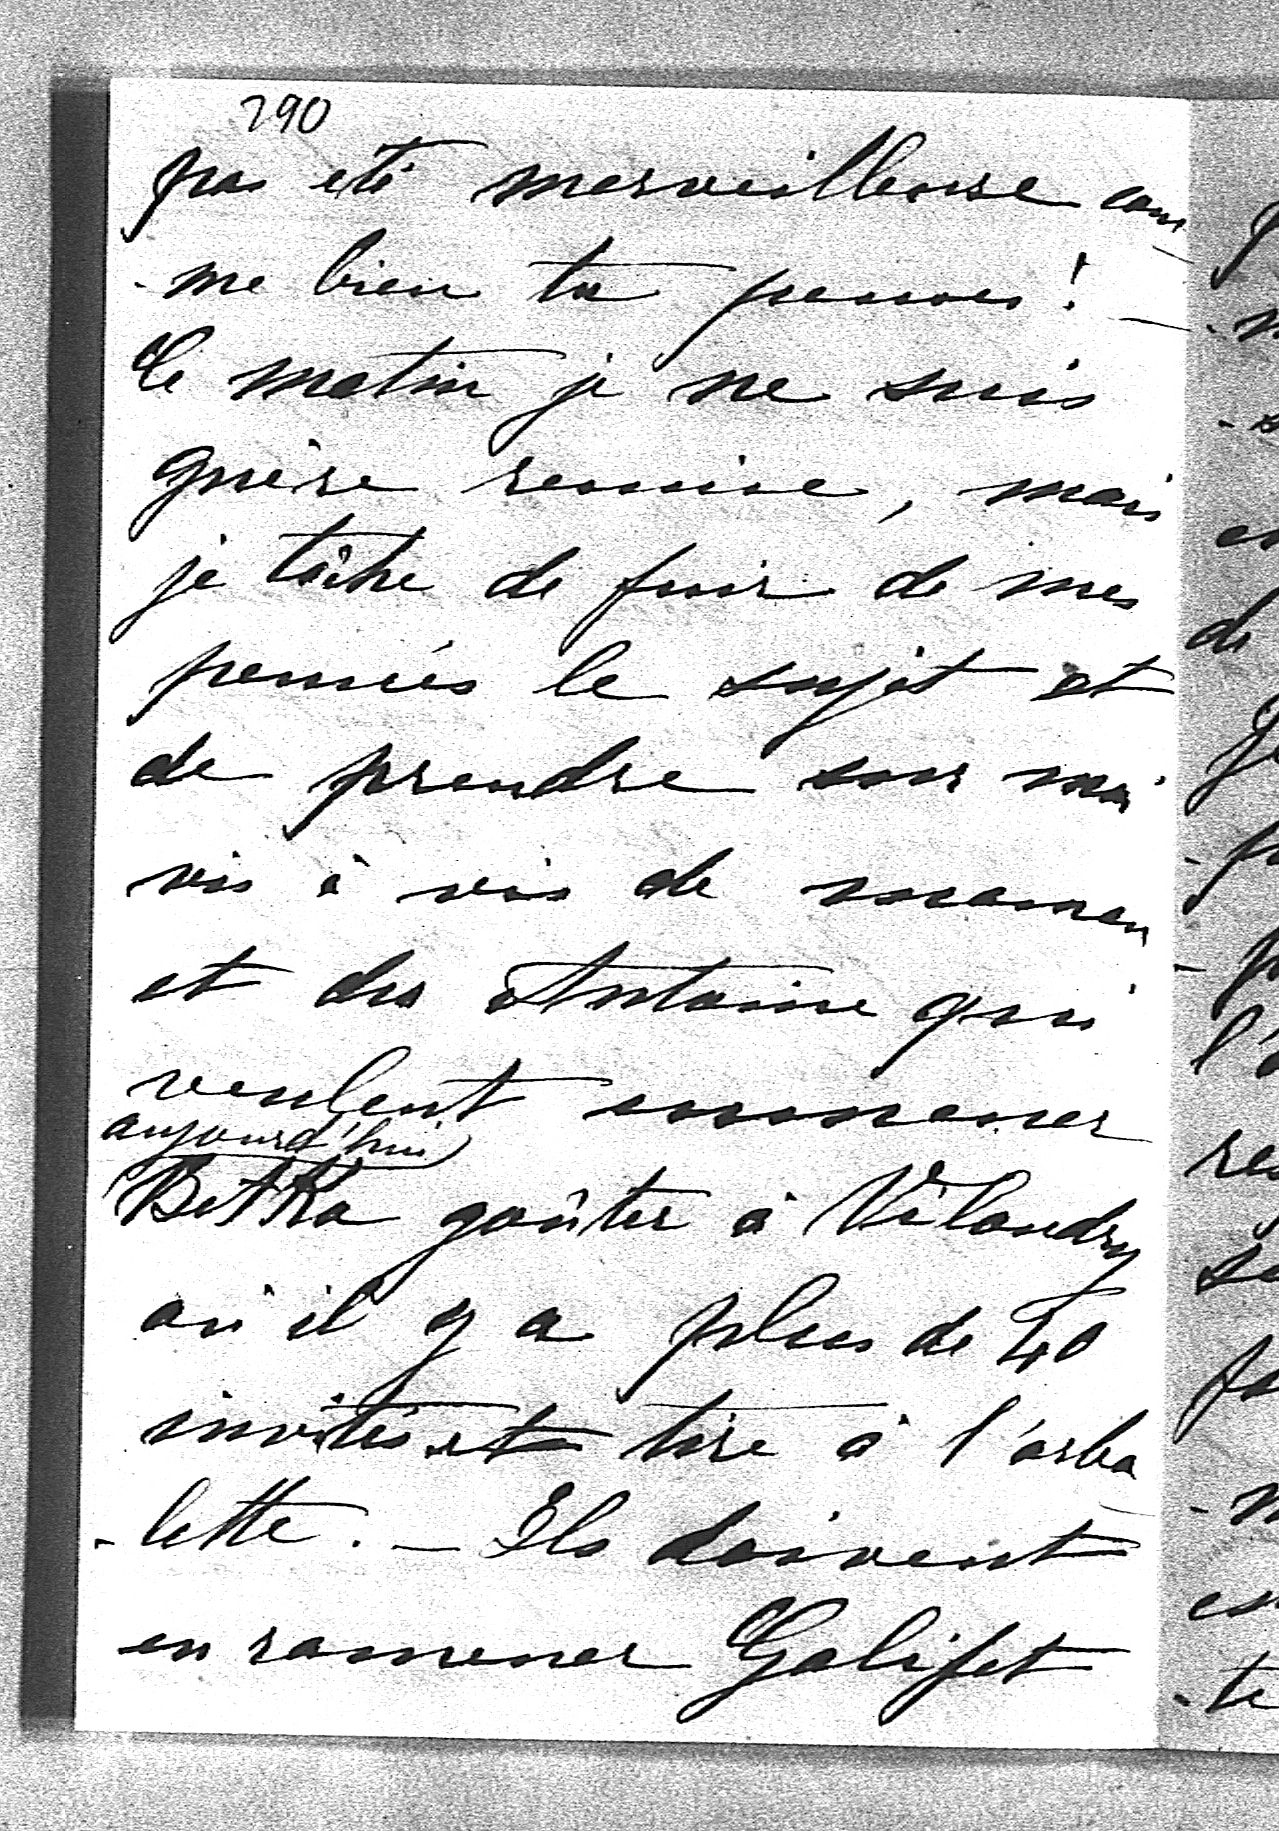 290
pas été merveilleuse com
-me bien tu penses! —
Ce matin je ne suis
guère remise, mais
je tâche de fuir de mes
pensées le sujet et
de prendre sur moi
vis à vis de maman
et des Antoine qui
veulent emmener
aujourd'hui
Betka goûter à Vilandry
où il y a plus de 40
invités et tire à l'arba
-lette. — Ils doivent
en ramener Galifet